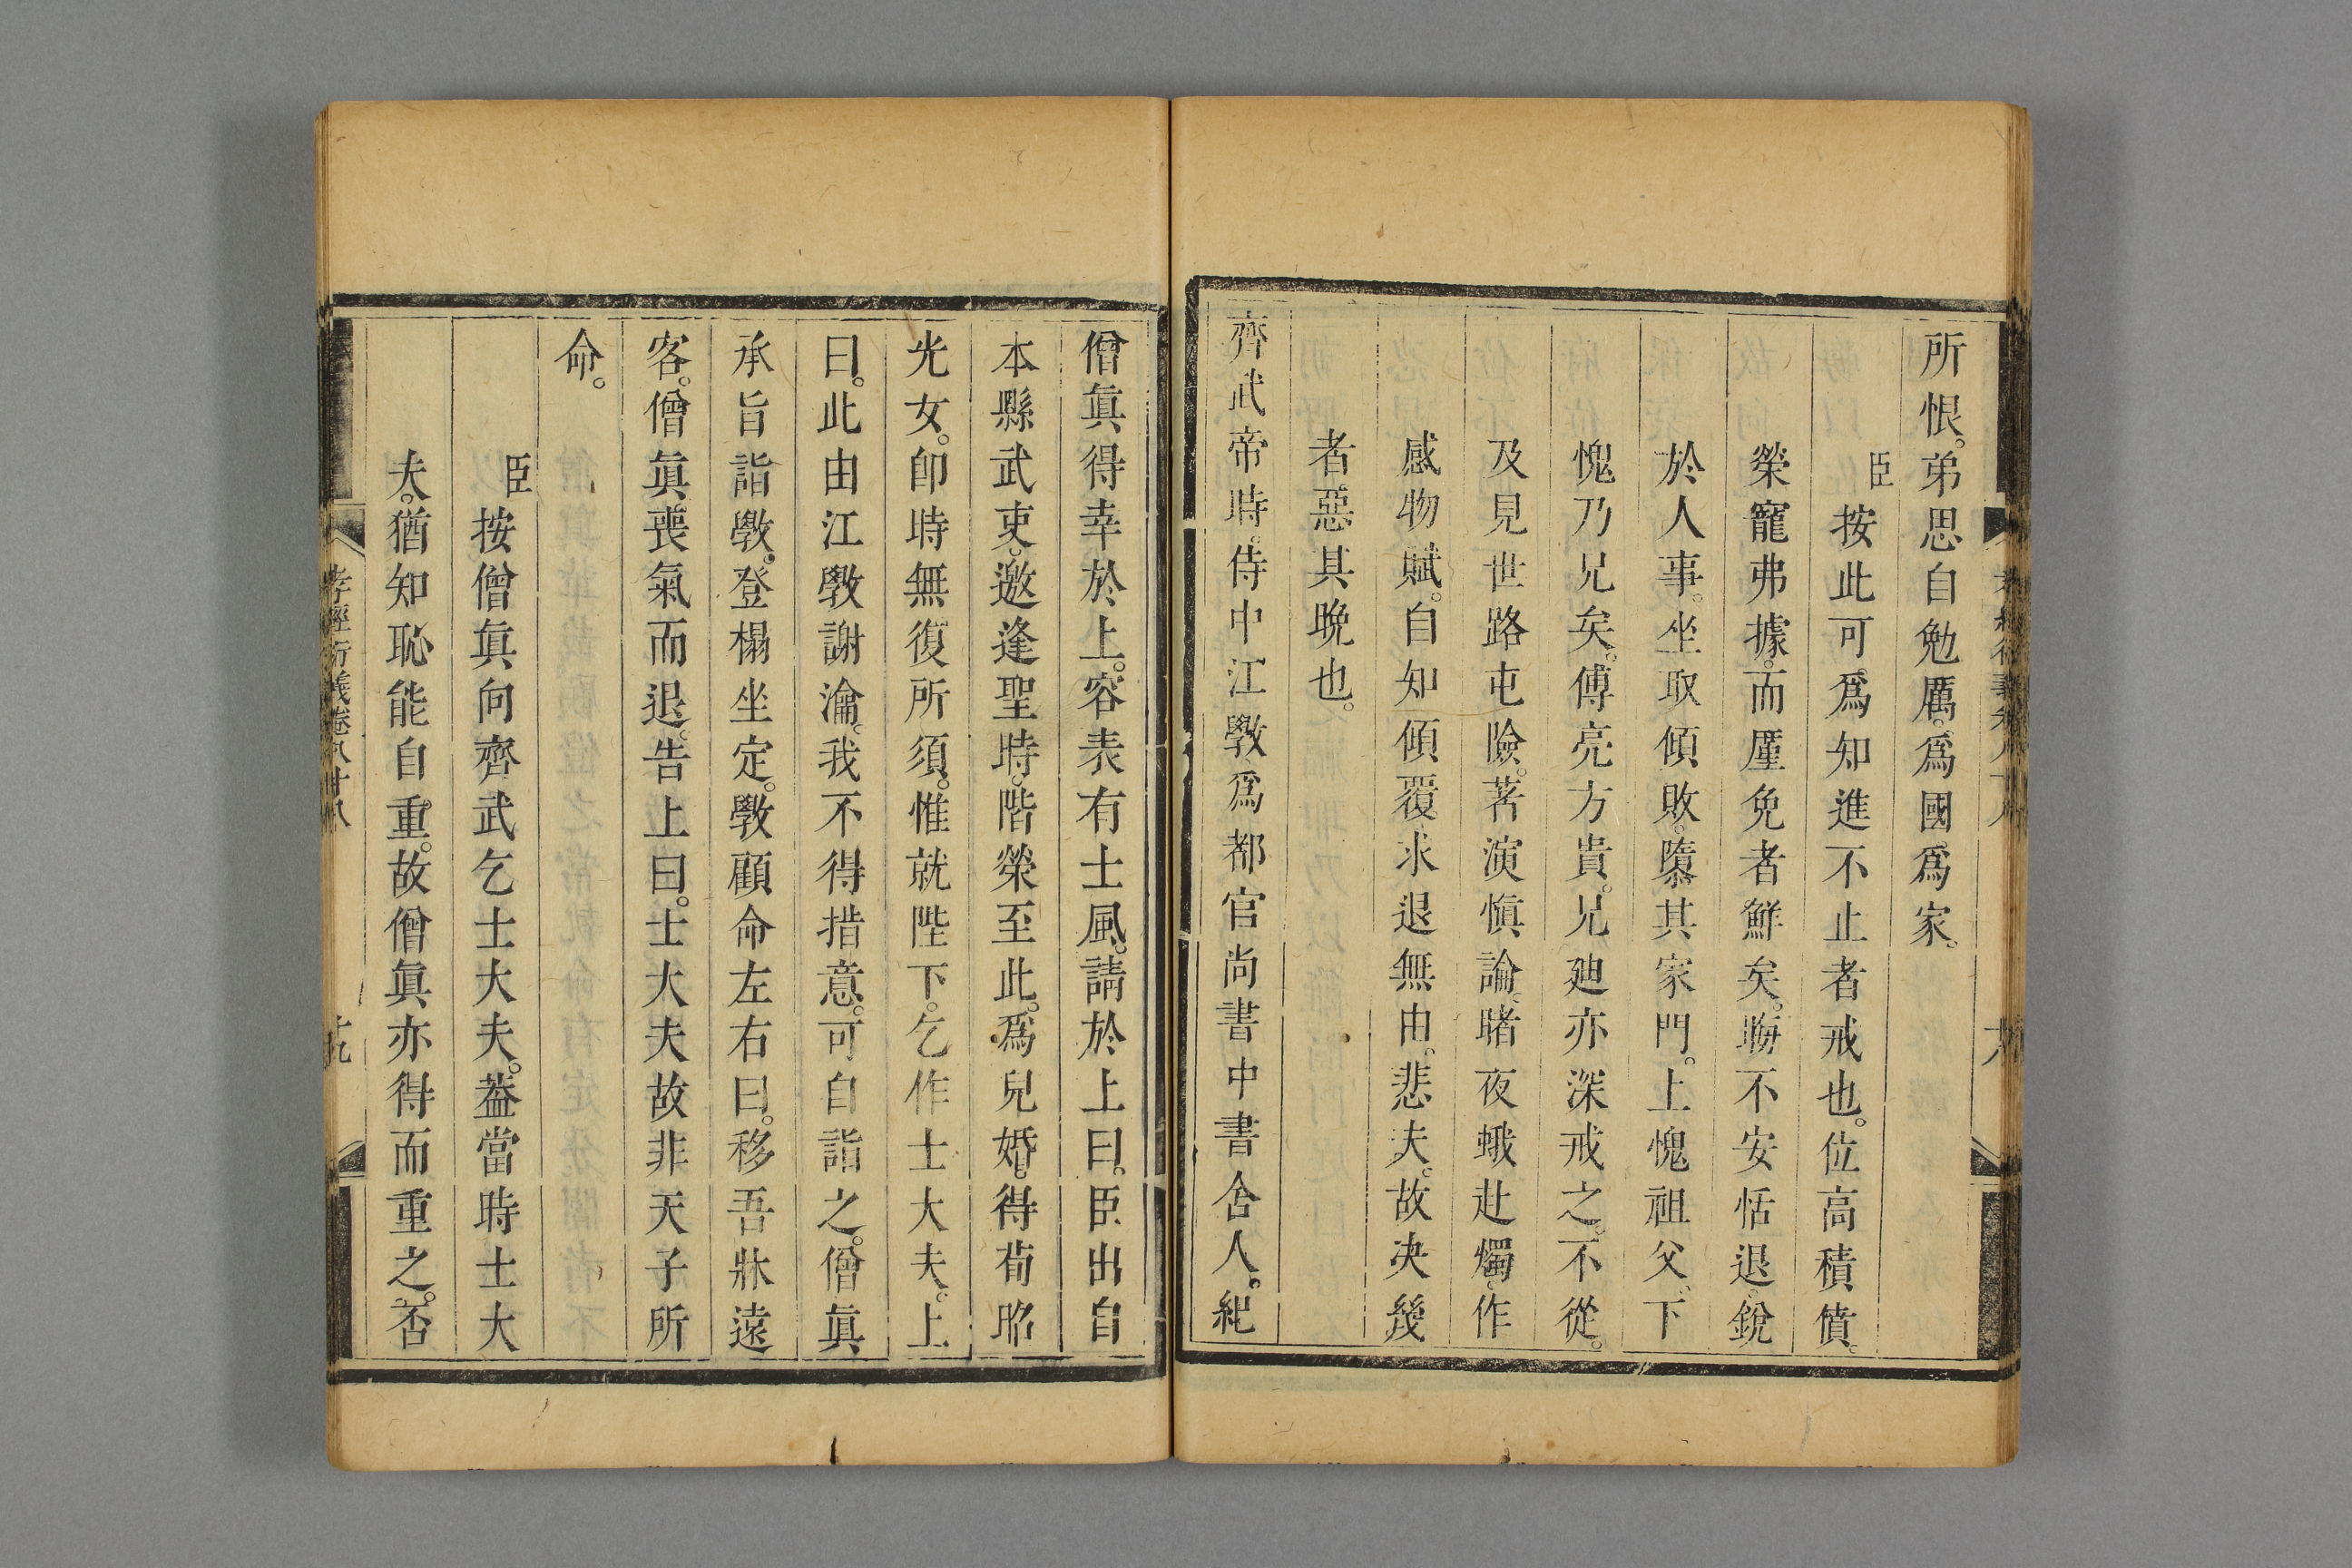 所恨。弟思自勉厲。爲國爲家。
臣按此可爲知進不止者戒也。位高積僨。
榮寵弗據。而厪免者鮮矣。晦不安恬退。銳
於人事。坐取傾敗。隳其家門。上愧祖父、下
愧乃兄矣。傅亮方貴。兄廸亦深戒之。不從。
及見世路屯險。著演愼論。睹夜蛾赴燭。作
感物賦。自知傾覆。求退無由。悲夫。故决幾
者。惡其晚也。
齊武帝時。侍中江斆爲都官尚書。中書舍人。紀
僧眞得幸於上。容表有士風。請於上曰。臣出自
本縣武吏。邀逢聖時。階榮至此。爲兒婚。得荀昭
光女。卽時無復所須。惟就陛下。乞作士大夫。上
曰。此由江斆謝瀹。我不得措意。可自詣之。僧眞
承旨詣斆。登榻坐定。斆顧命左右曰。移吾牀遠
客。僧眞喪氣而退。告上曰。士大夫故非天子所
命。
臣按僧眞向齊武乞士大夫。葢當時士大
夫。猶知恥能自重。故僧眞亦得而重之。否
孝經衍義卷八十八